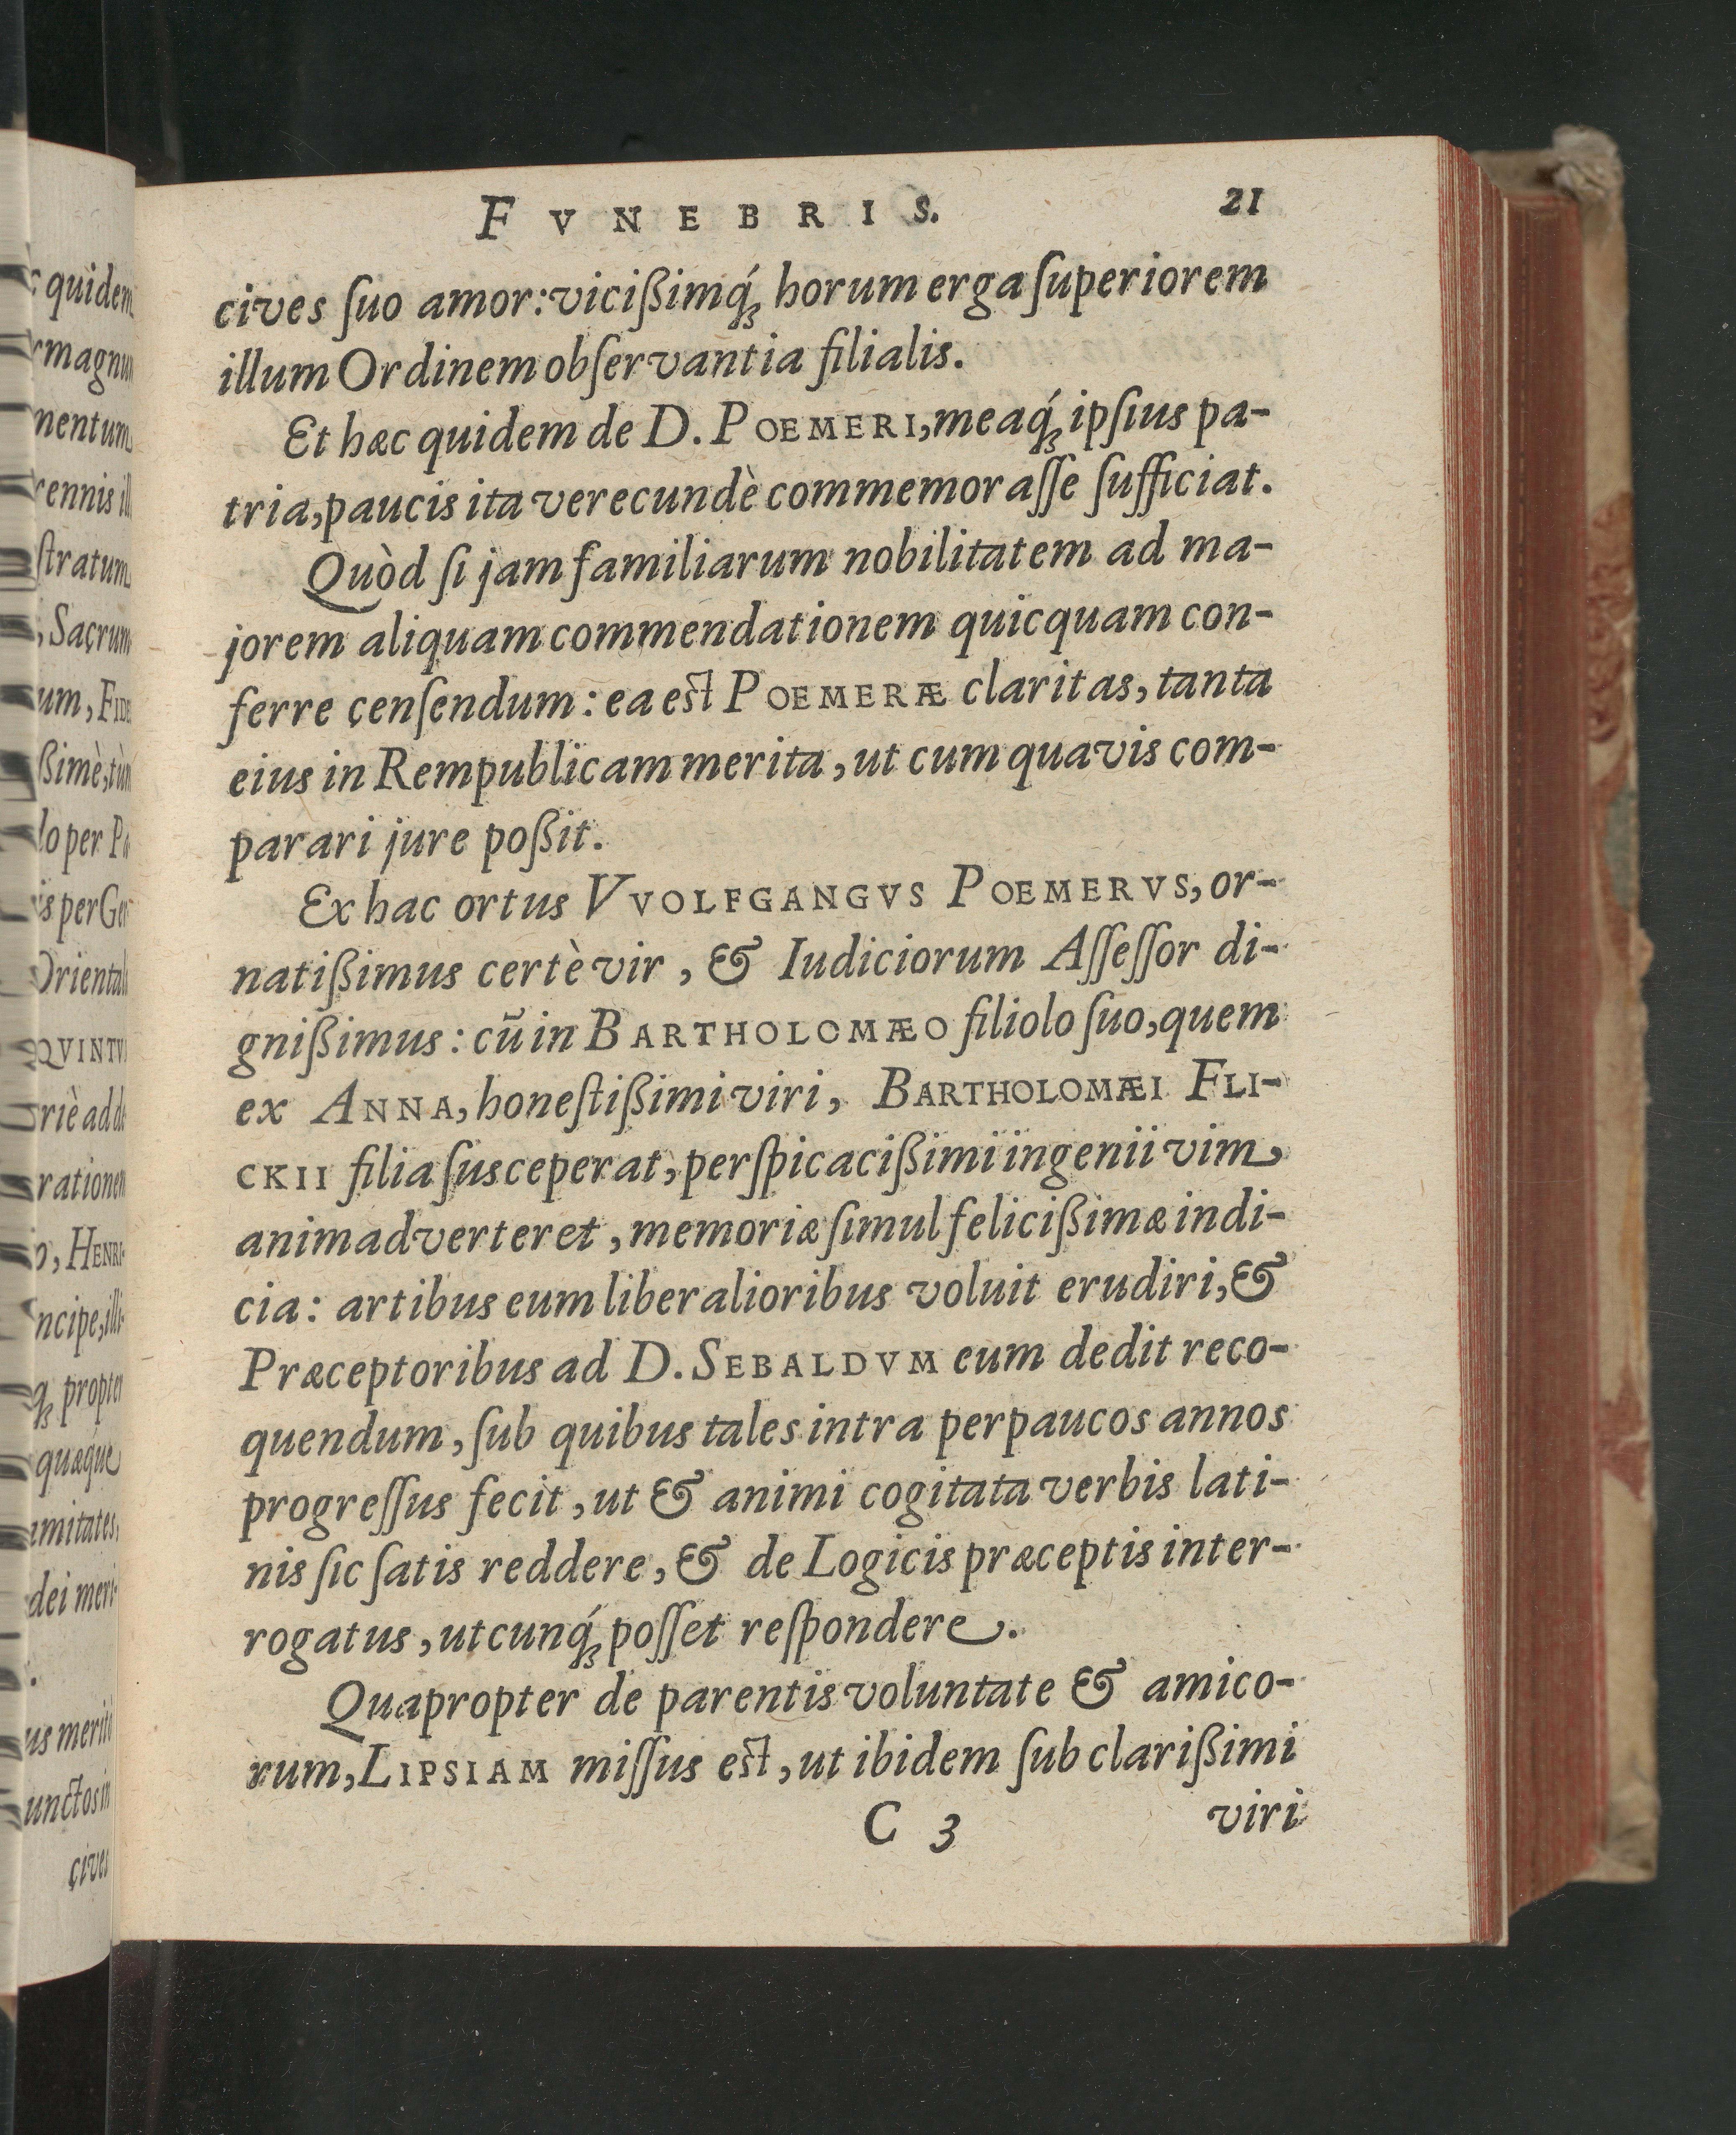 FVNEBRIS. 21
cives ſuo amor: viciſsimq́ꝫ horum erga ſuperiorem
illum Ordinem obſervantia filialis.
Et hæc quidem de D. POEMERI, meaq́ꝫ ipſius pa-
tria, paucis ita verecundè commemoraſſe ſufficiat.
Quòd ſi jam familiarum nobilitatem ad ma-
jorem aliquam commendationem quicquam con-
ferre çenſendum: ea eſt POEMERÆ claritas, tanta
eius in Rempublicam merita, ut cum quavis com-
parari jure poßit.
Ex hac ortus VVOLFGANGVS POEMERVS, or-
natißimus certè vir, & Iudiciorum Aſſeſſor di-
gnißimus: cũ in BARTHOLOMÆO filiolo ſuo, quem
ex ANNA, honeſtißimi viri, BARTHOLOMÆI FLI-
CKII filia ſusceperat, perſpicacißimi ingenii vim,
animadverteret, memoriæ ſimul felicißimæ indi-
cia: artibus eum liberalioribus voluit erudiri, &
Præceptoribus ad D. SEBALDVM eum dedit reco-
quendum, ſub quibus tales intra perpaucos annos
progreſſus fecit, ut & animi cogitata verbis lati-
nis ſic ſatis reddere, & de Logicis præceptis inter-
rogatus, utcunq́ꝫ poſſet reſpondere.
Quapropter de parentis voluntate & amico-
rum, LIPSIAM miſſus eſt, ut ibidem ſub clarißimi
C 3 viri